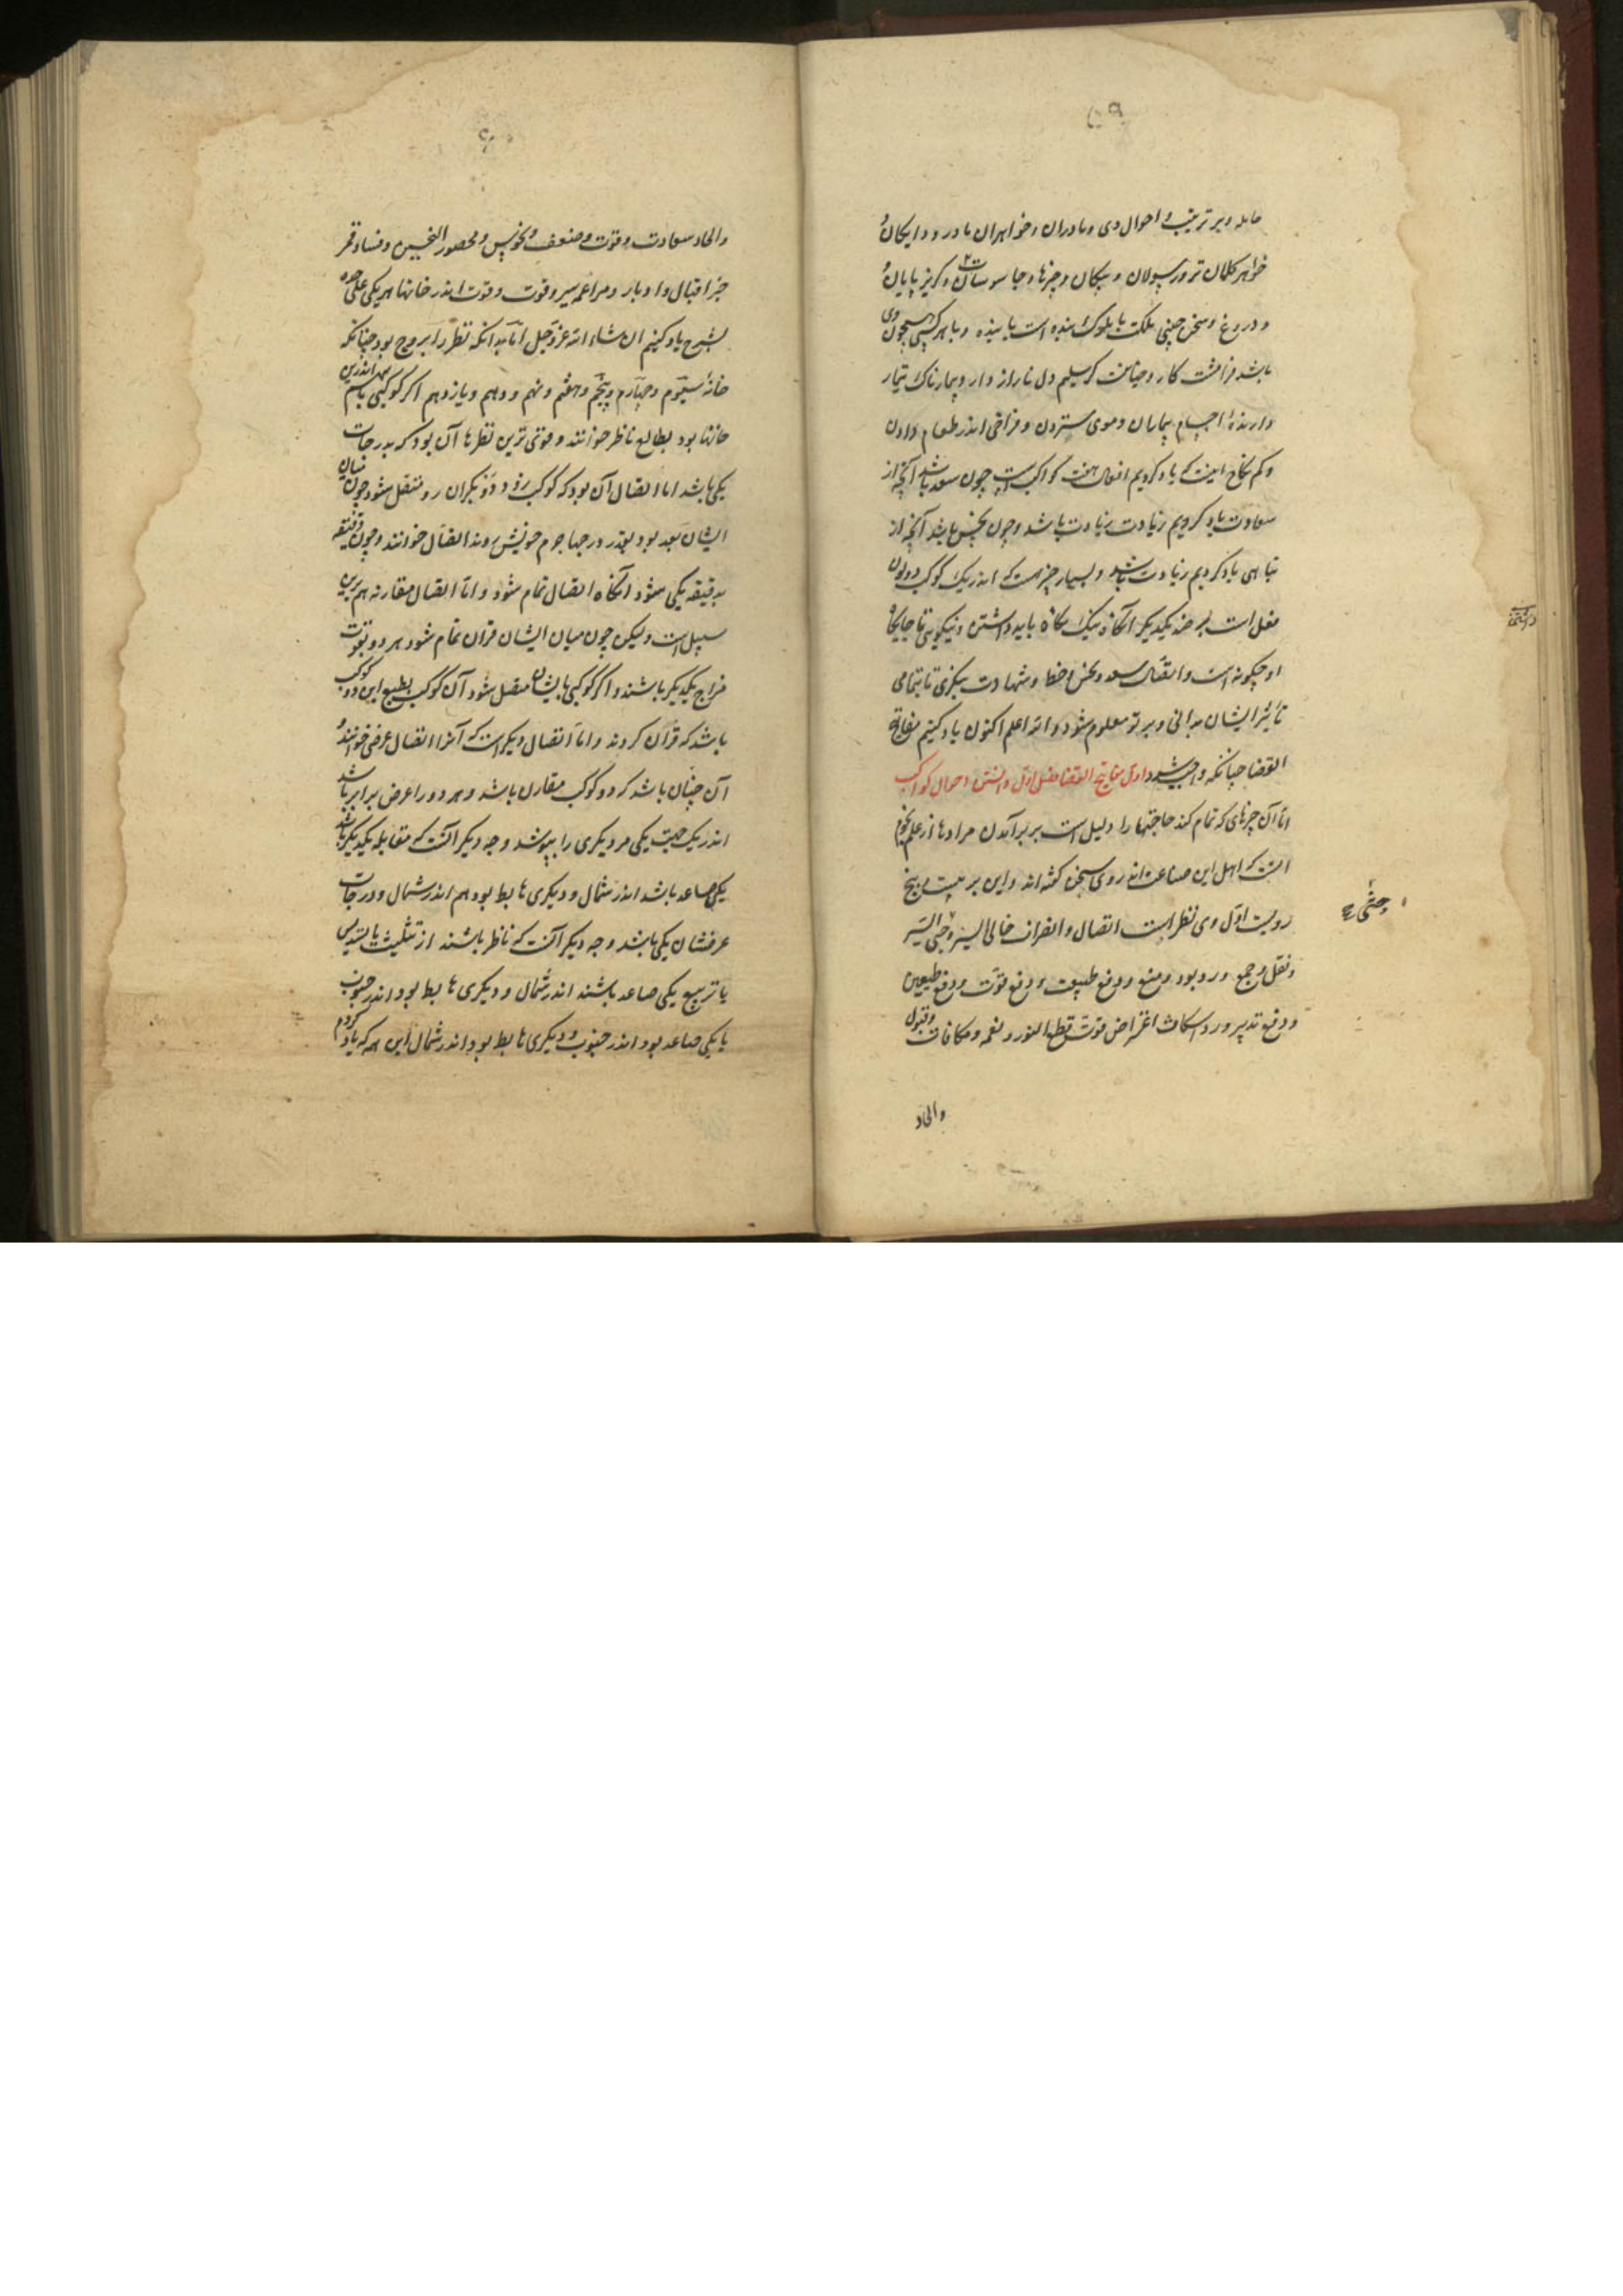 ۵۹
حامله و بر تربیت و احوال وی و مادران و خواهران مادر و دایکان و
خواهر کلان تر و رسولان و پیکان و خبرها و جاسوسان و کریز پایان و
و دروغ و سخن چینی ملکت با ملوک بنده است یا بنده و با هر کسی همچون وی
باشد فرامشت کار و خیانت کر سلیم دل ناراز دار و بیمارناک تیمار
دارنده اجسام بیماران و موی ستردن و فراخی اندر طعام دادن
و کم نکاح اینست که یاد کردیم افعال هفت کواکبست چون سعد باشد آنچه از
سعادت یاد کردیم زیادت زیادت باشد و چون نحس باشد آنچه از
تباهی یاد کردیم زیادت باشد و بسیار چیز است که اندر یک کوکب دو لون
فعل است بر ضد یکدیکر آنکاه نیک نکاه باید داشتن و نیکویی تا جایکاه
او چکونه است و اتصال سعد و نحس و خط و شهادت بنکری تا بتمامی
تأثیر ایشان بدانی و بر تو معلوم شود و الله اعلم اکنون یاد کنیم مفاتیح
القضا چنانکه واجب شود اول مفاتیح القضا فصل اول دانستن احوال کواکب
اما آن چیزهای که تمام کند حاجتها را و دلیل است بر برآمدن مرادها از علم نجوم
آنست که اهل این صناعت از روی سخن کفته اند و این بر بیست و پنج
رویست اول وی نظر است اتصال و انصراف خالی السیر وحشی السیر
و نقل و جمع و رد بود و منع و دفع طبیعت و دفع قوت و دفع طبیعین
و دفع تدبیر و رد اسکات اعتراض فوت قطع النور و نعمه و مکافات و قبول
والحاد
وحشی
۶۰
والحاد سعادت و قوت و ضعف و نحوس و محصور النحسین و فساد قمر
جز اقبال و ادبار و مراغمه سیر و قوت و قوت اندر خانها هر یکی علی حده
بشرح یاد کنیم ان شاء الله عز و جل اما بدانکه نظر را بروج بود چنانکه
خانهٔ سیوم و چهارم و پنجم و هفتم و نهم و دهم و یازدهم اکر کوکبی باشد اندرین
خانها بود بطالع ناظر خوانند و قوی ترین نظرها آن بود که بدرجات
یکی باشد اما اتصال آن بود که کوکب زود رو بکران رو متصل شود چون میان
ایشان بعد بود بقدر درجها جرم خویش روند اتصال خوانند و چون دقیقه
بدقیقه یکی شود آنکاه اتصال تمام شود و اما اتصال مقارنه هم برین
سبیل است ولیکن چون میان ایشان قران تمام شود هر دو بقوت
مزاج یکدیکر باشند و اکر کوکبی بایشان متصل شود آن کوکب بطبع این دو کوکب
باشد که قران کردند و اما اتصال دیکر است که آنرا اتصال عرضی خوانند و
آن چنان باشد که دو کوکب مقارن باشند و هر دو را عرض برابر باشد
اندر یک جهت یکی مر دیکری را بپوشد و جه دیکر آنست که مقابله یکدیکر باشد
یکی صاعد باشد اندر شمال و دیکری هابط بود هم اندر شمال و درجات
عرضشان یکی باشد و جه دیکر آنست که ناظر باشند از تثلیث یا تسدیس
یا تربیع یکی صاعد باشند اندر شمال و دیکری هابط بود اندر جنوب
یا یکی صاعد بود اندر جنوب و دیکری هابط بود اندر شمال این همه که یاد کردم